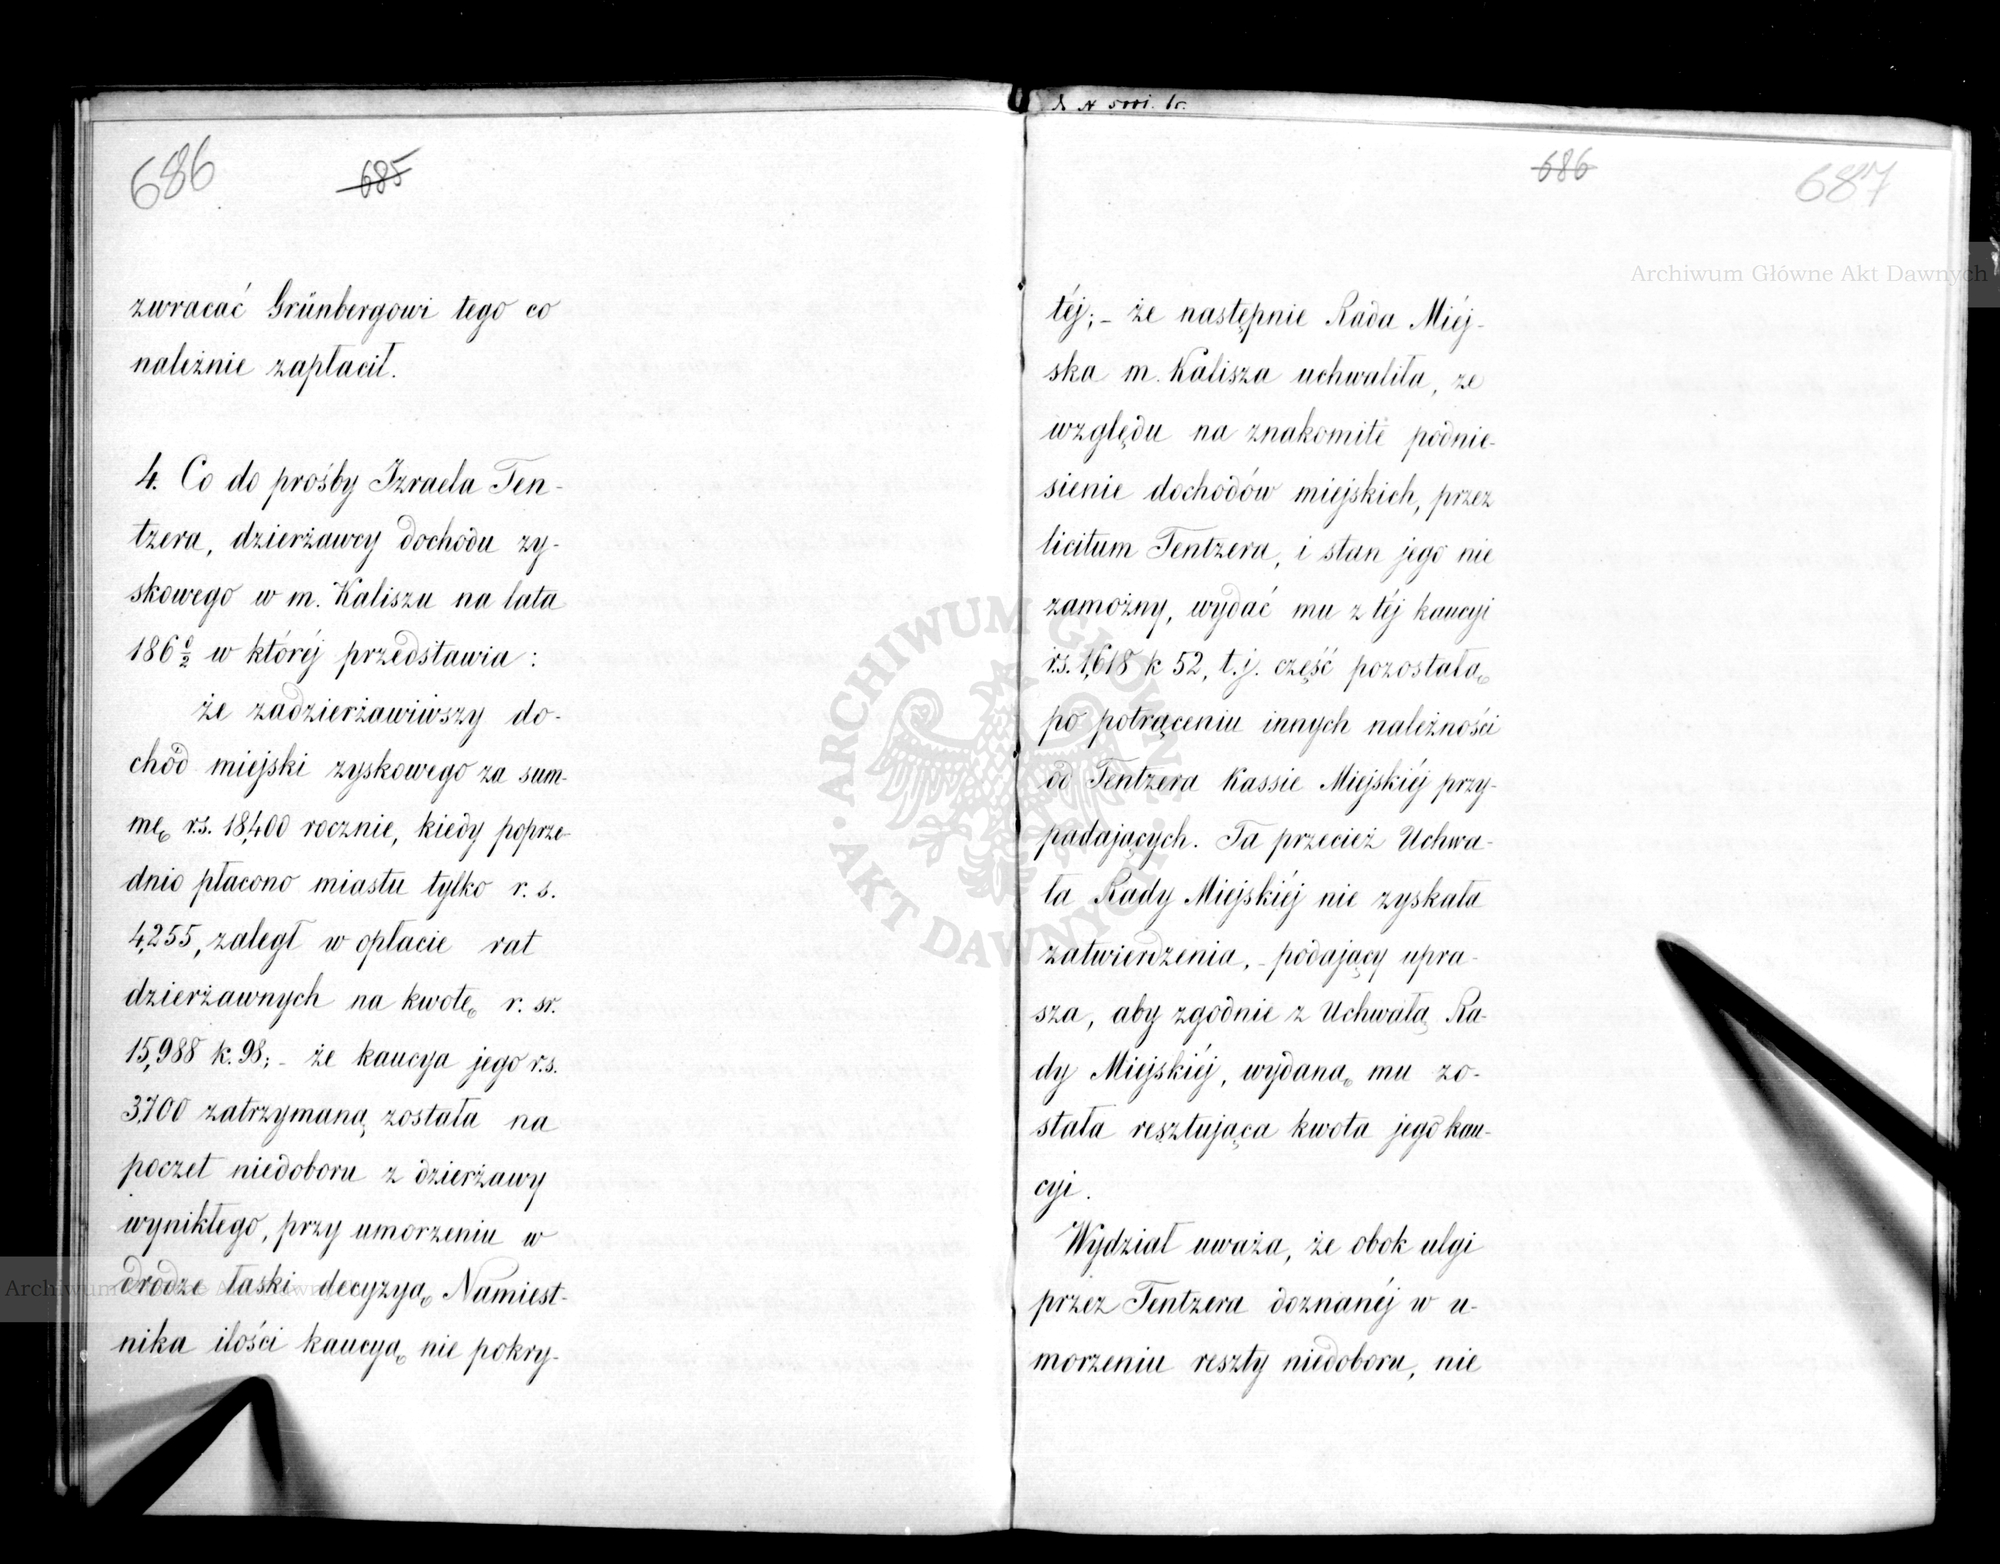 686
685
zwracać Grünbergowi tego co
należnie zapłacił.
4. Co do prośby Izraela Ten-
tzera, dzierżawcy dochodu zy-
skowego w m. Kaliszu na lata
186 0/2 w któréj przedstawia:
że zadzierżawiwszy do-
chód miejski zyskowego za sum-
mę rs. 18,400 rocznie, kiedy poprze-
dnio płacono miastu tylko r. s.
4,255, zaległ w opłacie rat
dzierżawnych na kwotę r. sr.
15,988 k. 98; – że kaucya jego r.s.
3,700 zatrzymaną została na
poczet niedoboru z dzierżawy
wynikłego, przy umorzeniu w
drodze łaski decyzyą Namiest-
nika ilości kaucyą nie pokry-
686
687
téj; – że następnie Rada Miéj-
ska m. Kalisza uchwaliła, ze
względu na znakomite podnie-
sienie dochodów miejskich, przez
licitum Tentzera, i stan jego nie
zamożny, wydać mu z téj kaucyi
rs. 1,618 k 52, t.j. część pozostałą
po potrąceniu innych należności
od Tentzera Kassie Miejskiéj przy-
padających. Ta przecież Uchwa-
ła Rady Miejskiéj nie zyskała
zatwierdzenia, – podający upra-
sza, aby zgodnie z Uchwałą Ra-
dy Miejskiéj, wydaną mu zo-
stała resztująca kwota jego kau-
cyi.
Wydział uważa, że obok ulgi
przez Tentzera doznanéj w u-
morzeniu reszty niedoboru, nie
Archiwum Główne Akt Dawnych
Archiwum Główne Akt Dawnych
ARCHIWUM GŁÓWNE · AKT DAWNYCH ·